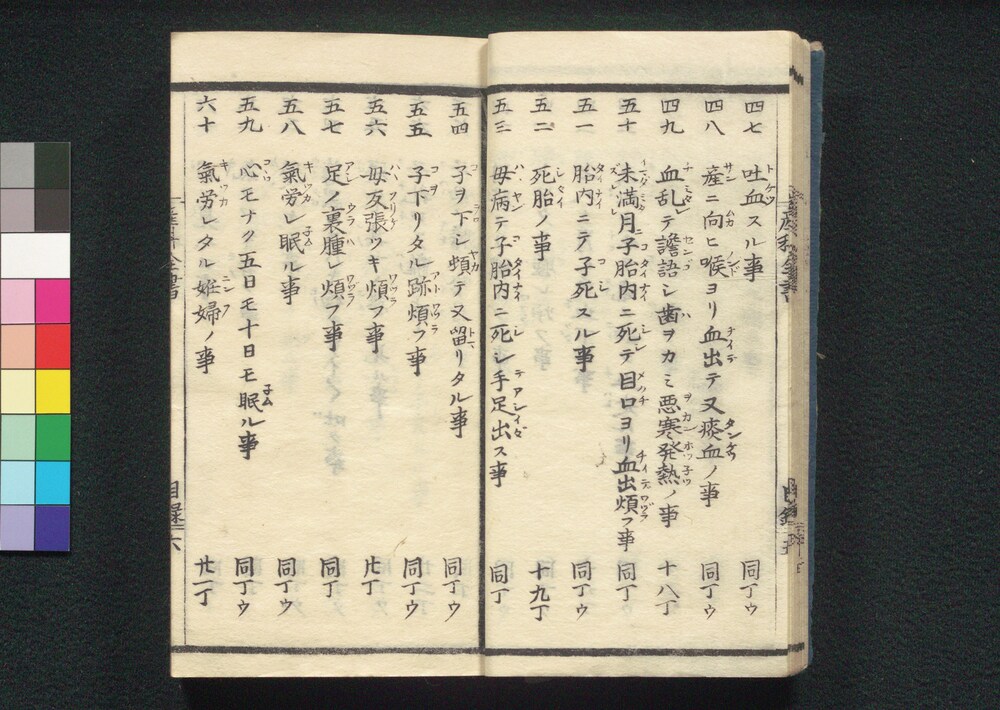 四七 吐血スル事 同丁ウ
四八 産ニ向ヒ喉ヨリ血出テ又痰血ノ事 同丁ウ
四九 血乱テ譫語シ歯ヲカミ悪寒発熱ノ事 十八丁
五十 未満月子胎内ニ死テ目口ヨリ血出煩フ事 同丁ウ
五一 胎内ニテ子死スル事 同丁ウ
五二 死胎ノ事 十九丁
五三 母病テ子胎内ニ死シ手足出ス事 同丁
五四 子ヲ下シ テ又留リタル事 同丁ウ
五五 子下リタル跡煩フ事 同丁ウ
五六 母反張ツキ煩フ事 廿丁
五七 足ノ裏腫レ煩フ事 同丁
五八 氣労レ眠ル事 同丁ウ
五九 心モナク五日モ十日モ眠ル事 同丁ウ
六十 氣労レタル妊婦ノ事 廿一丁
目録 六